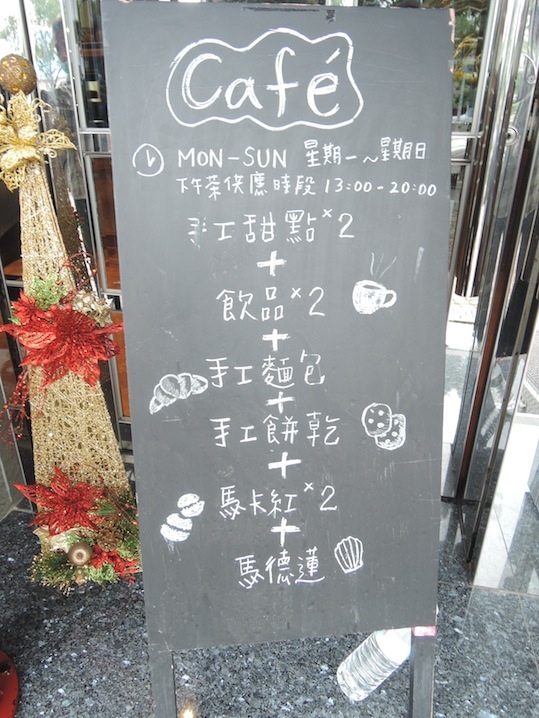 Café
MON-SUN 星期一~星期日
下午茶供應時段 13:00-20:00
手工甜點×2
+
飲品×2
+
手工麵包
+
手工餅乾
+
馬卡紅×2
+
馬德蓮